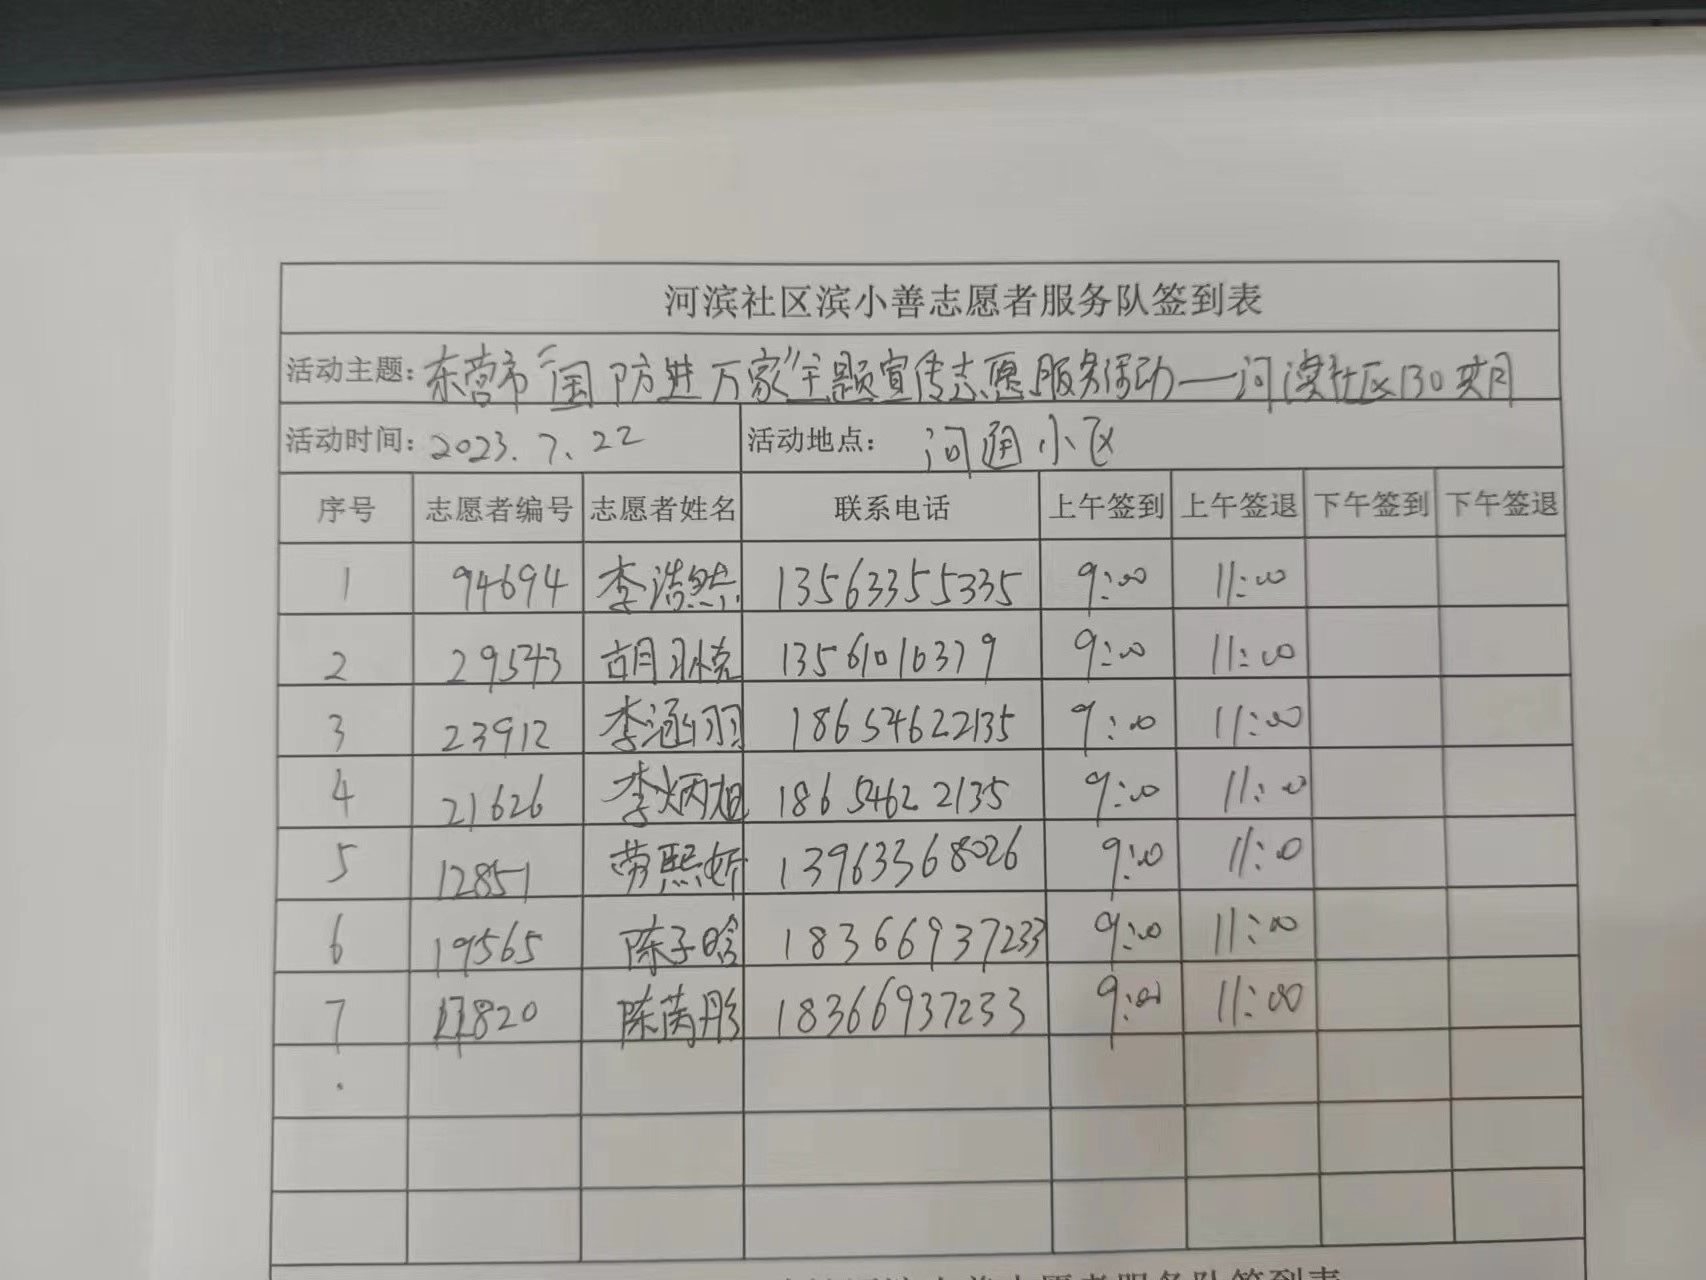 河滨社区滨小善志愿者服务队签到表
活动主题：东营市"国防进万家"主题宣传志愿服务活动——河滨社区130实月
活动时间：2023.7.22 活动地点：河通小区
序号 志愿者编号 志愿者姓名 联系电话 上午签到 上午签退 下午签到 下午签退
1 94694 李浩然 13563355335 9:00 11:00
2 29543 胡 13561016379 9:00 11:00
3 23912 李涵羽 18654622135 9:00 11:00
4 21626 李炳旭 18654622135 9:00 11:00
5 12851 劳熙娇 13963368026 9:00 11:00
6 19565 陈子晗 18366937233 9:00 11:00
7 11820 陈茵彤 18366937233 9:00 11:00
小善志愿者服务队签到表